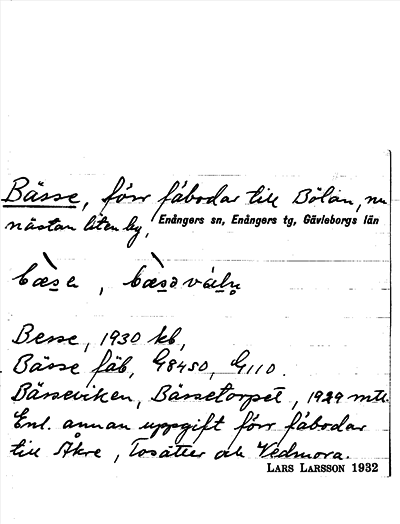 Bässe, förr fäbodar till Bölan, nu
nästan liten by, Enångers sn, Enångers tg, Gävleborgs län
Besse, 1930 kb,
Bässe fäb, G8450, G110.
Bässeviken, Bässetorpet, 1929 mtl
Enl. annan uppgift förr fäbodar
till Åkre, Tosätter och Vedmora.
LARS LARSSON 1932